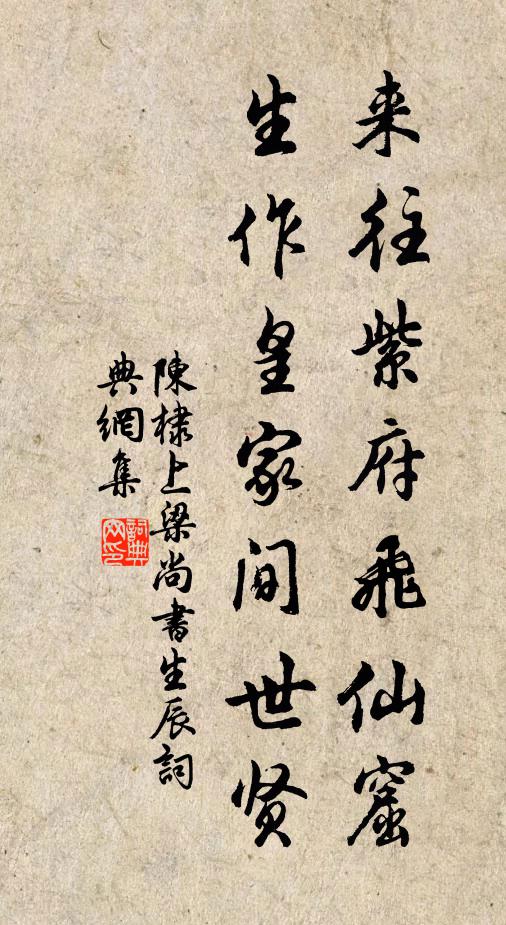 来往紫府飛仙窟
生作皇家间世贤
陳棣上梁尚書生辰詞
典網集
詞典网印